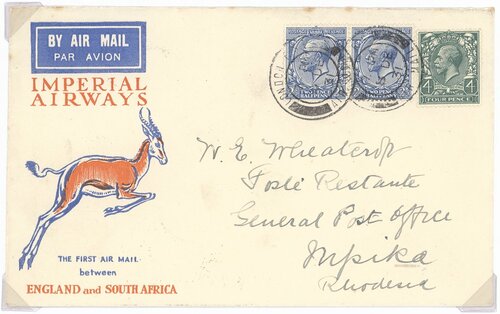 BY AIR MAIL
PAR AVION
IMPERIAL
AIRWAYS
TWO PENCE
HALFPENNY
TWO PENCE
HALFPENNY
4 4
FOUR PENCE
W. E. Wheatcroft
Poste Restante
General Post Office
Mpika
Rhodesia
THE FIRST AIR MAIL
between
ENGLAND and SOUTH AFRICA